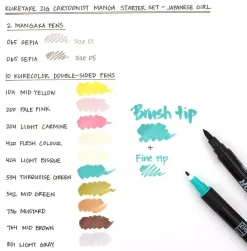 KURETAKE ZIG CARTOONIST MANGA STARTER SET - JAPANESE GIRL
2 MANGAKA PENS
065 SEPIA
Size 01
065 SEPIA
Size 05
10 KURECOLOR DOUBLE-SIDED PENS
104 MID YELLOW
200 PALE PINK
204 LIGHT CARMINE
420 FLESH COLOUR
424 LIGHT BISQUE
534 TURQUOISE GREEN
542 MID GREEN
736 MUSTARD
764 MID BROWN
801 LIGHT GRAY
Brush tip
+
Fine tip